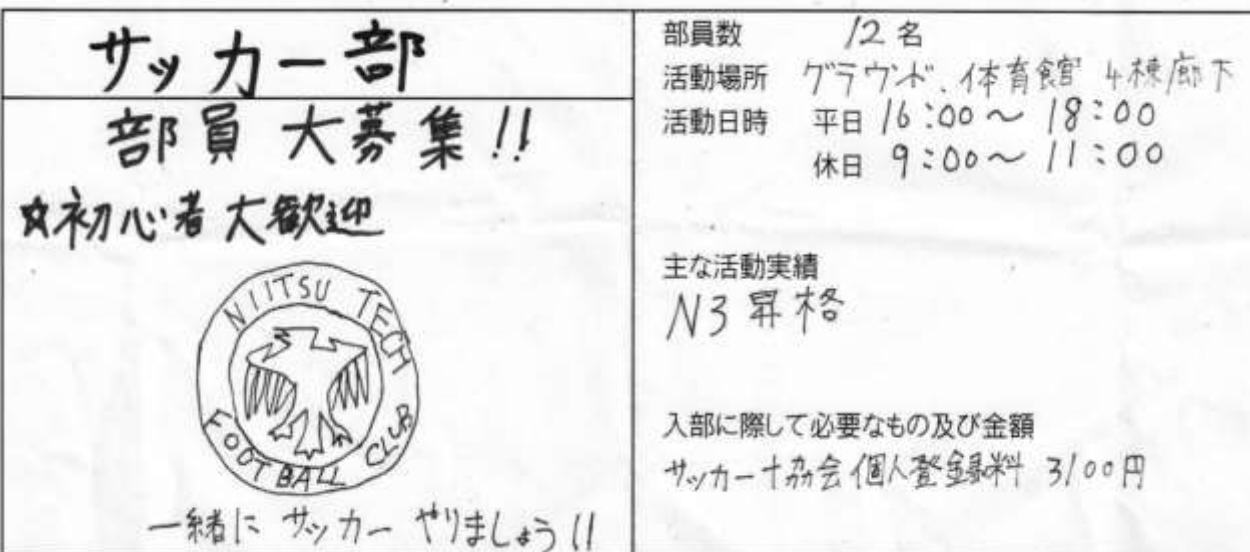 サッカー部
部員 大募集!!
☆初心者大歓迎
NIITSU TECH
FOOTBALL CLUB
一緒に サッカー やりましょう!!
部員数 12名
活動場所 グラウンド、体育館 4棟廊下
活動日時 平日 16:00~18:00
休日 9:00~11:00
主な活動実績
N3昇格
入部に際して必要なもの及び金額
サッカー協会個人登録料 3100円